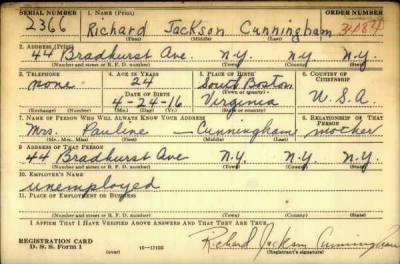 SERIAL NUMBER 1. NAME (Print) ORDER NUMBER
2366 Richard Jackson Cunningham
(First) (Middle) (Last)
2. ADDRESS (Print)
44 Bradhurst Ave. N.Y. N.Y. N.Y.
(Number and street or R. F. D. number) (Town) (County) (State)
3. TELEPHONE 4. AGE IN YEARS 5. PLACE OF BIRTH 6. COUNTRY OF CITIZENSHIP
none 24 South Boston
DATE OF BIRTH (Town or county)
4-24-16 Virginia U.S.A.
(Exchange) (Number) (Mo.) (Day) (Yr.) (State or country)
7. NAME OF PERSON WHO WILL ALWAYS KNOW YOUR ADDRESS 8. RELATIONSHIP OF THAT PERSON
Mrs. Pauline — Cunningham mother
(Mr., Mrs., Miss) (First) (Middle) (Last)
9. ADDRESS OF THAT PERSON
44 Bradhurst Ave N.Y. N.Y. N.Y.
(Number and street or R. F. D. number) (Town) (County) (State)
10. EMPLOYER'S NAME
unemployed
11. PLACE OF EMPLOYMENT OR BUSINESS
(Number and street or R. F. D. number) (Town) (County) (State)
I AFFIRM THAT I HAVE VERIFIED ABOVE ANSWERS AND THAT THEY ARE TRUE.
REGISTRATION CARD
D. S. S. Form 1 (over) Richard Jackson Cunningham
(Registrant's signature)